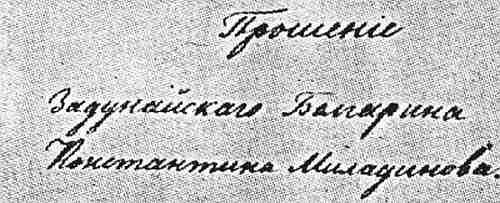 Прошеніе
Задунайскаго Болгарина
Константина Миладинова.